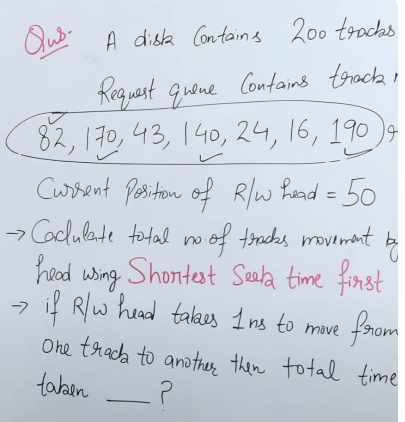 Qus- A disk Contains 200 tracks
Request queue Contains track
82, 170, 43, 140, 24, 16, 190
Current Position of R/W head = 50
→ Caculate total no. of tracks movement by
head using Shortest Seek time first
→ if R/W head takes 1ns to move from
one track to another then total time
taken ___ ?